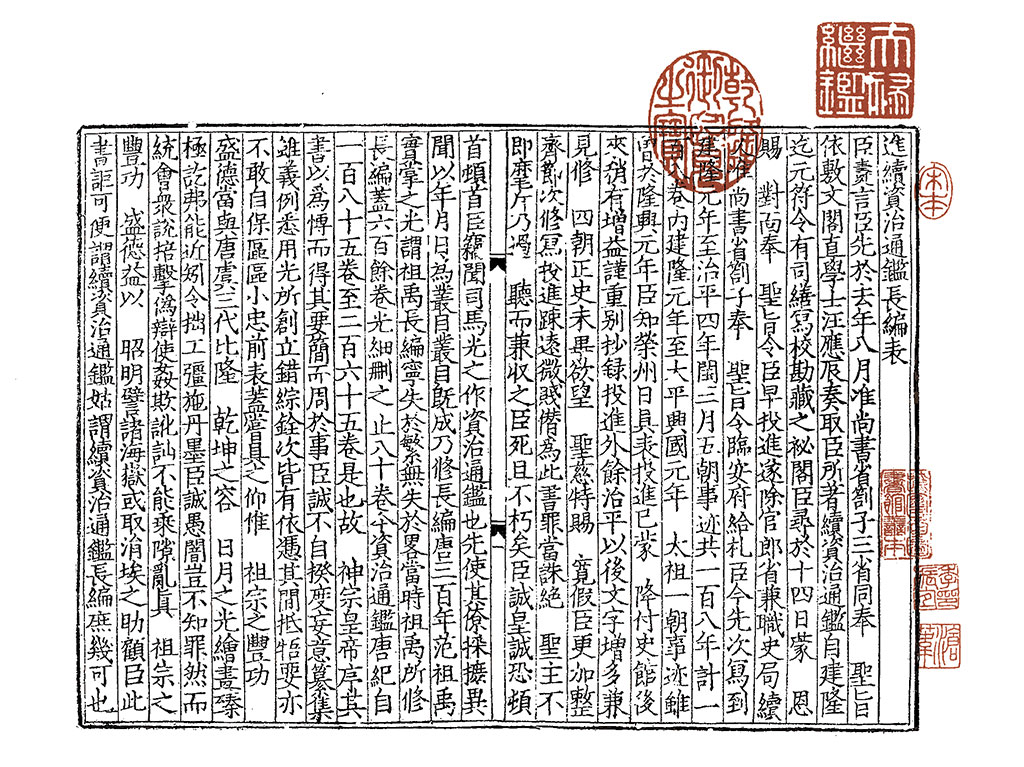 天祿繼鑑
乾隆御覽之寶
宋本
進續資治通鑑長編表
臣燾言臣先於去年八月准尚書省劄子三省同奉　聖旨
依敷文閣直學士汪應辰奏取臣所著續資治通鑑自建隆
迄元符令有司繕寫校勘藏之祕閣臣尋於十四日蒙　恩
賜　對面奉　聖旨令臣早投進遂除官郎省兼職史局續
又准尚書省劄子奉　聖旨令臨安府給札臣今先次寫到
建隆元年至治平四年閏三月五朝事迹共一百八年計一
百八卷內建隆元年至太平興國元年　太祖一朝事迹雖
曾於隆興元年臣知榮州日具表投進已蒙　降付史館後
來稍有增益謹重別抄録投進外餘治平以後文字增多兼
見修　四朝正史未畢欲望　聖慈特賜　寬假臣更加整
齊節次修寫投進踈遠微賤僭為此書罪當誅絕　聖主不
即麾斥乃過　聽而兼收之臣死且不朽矣臣誠皇誠恐頓
首頓首臣竊聞司馬光之作資治通鑑也先使其寮採摭異
聞以年月日為叢目叢目既成乃修長編唐三百年范祖禹
實掌之光謂祖禹長編寧失於繁無失於畧當時祖禹所修
長編蓋六百餘卷光細刪之止八十卷今資治通鑑唐紀自
一百八十五卷至二百六十五卷是也故　神宗皇帝序其
書以為博而得其要簡而周於事臣誠不自揆度妄意纂集
雖義例悉用光所創立錯綜銓次皆有依憑其間抵牾要亦
不敢自保區區小忠前表蓋嘗具之仰惟　祖宗之豐功
盛德當與唐虞三代比隆　乾坤之容　日月之光繪畫臻
極訖弗能近矧令拙工彊施丹墨臣誠愚闇豈不知罪然而
統會衆說掊擊偽辯使姦欺訛訕不能乘隙亂真　祖宗之
豐功　盛德益以　昭明譬諸海嶽或取涓埃之助顧臣此
書詎可便謂續資治通鑑姑謂續資治通鑑長編庶幾可也